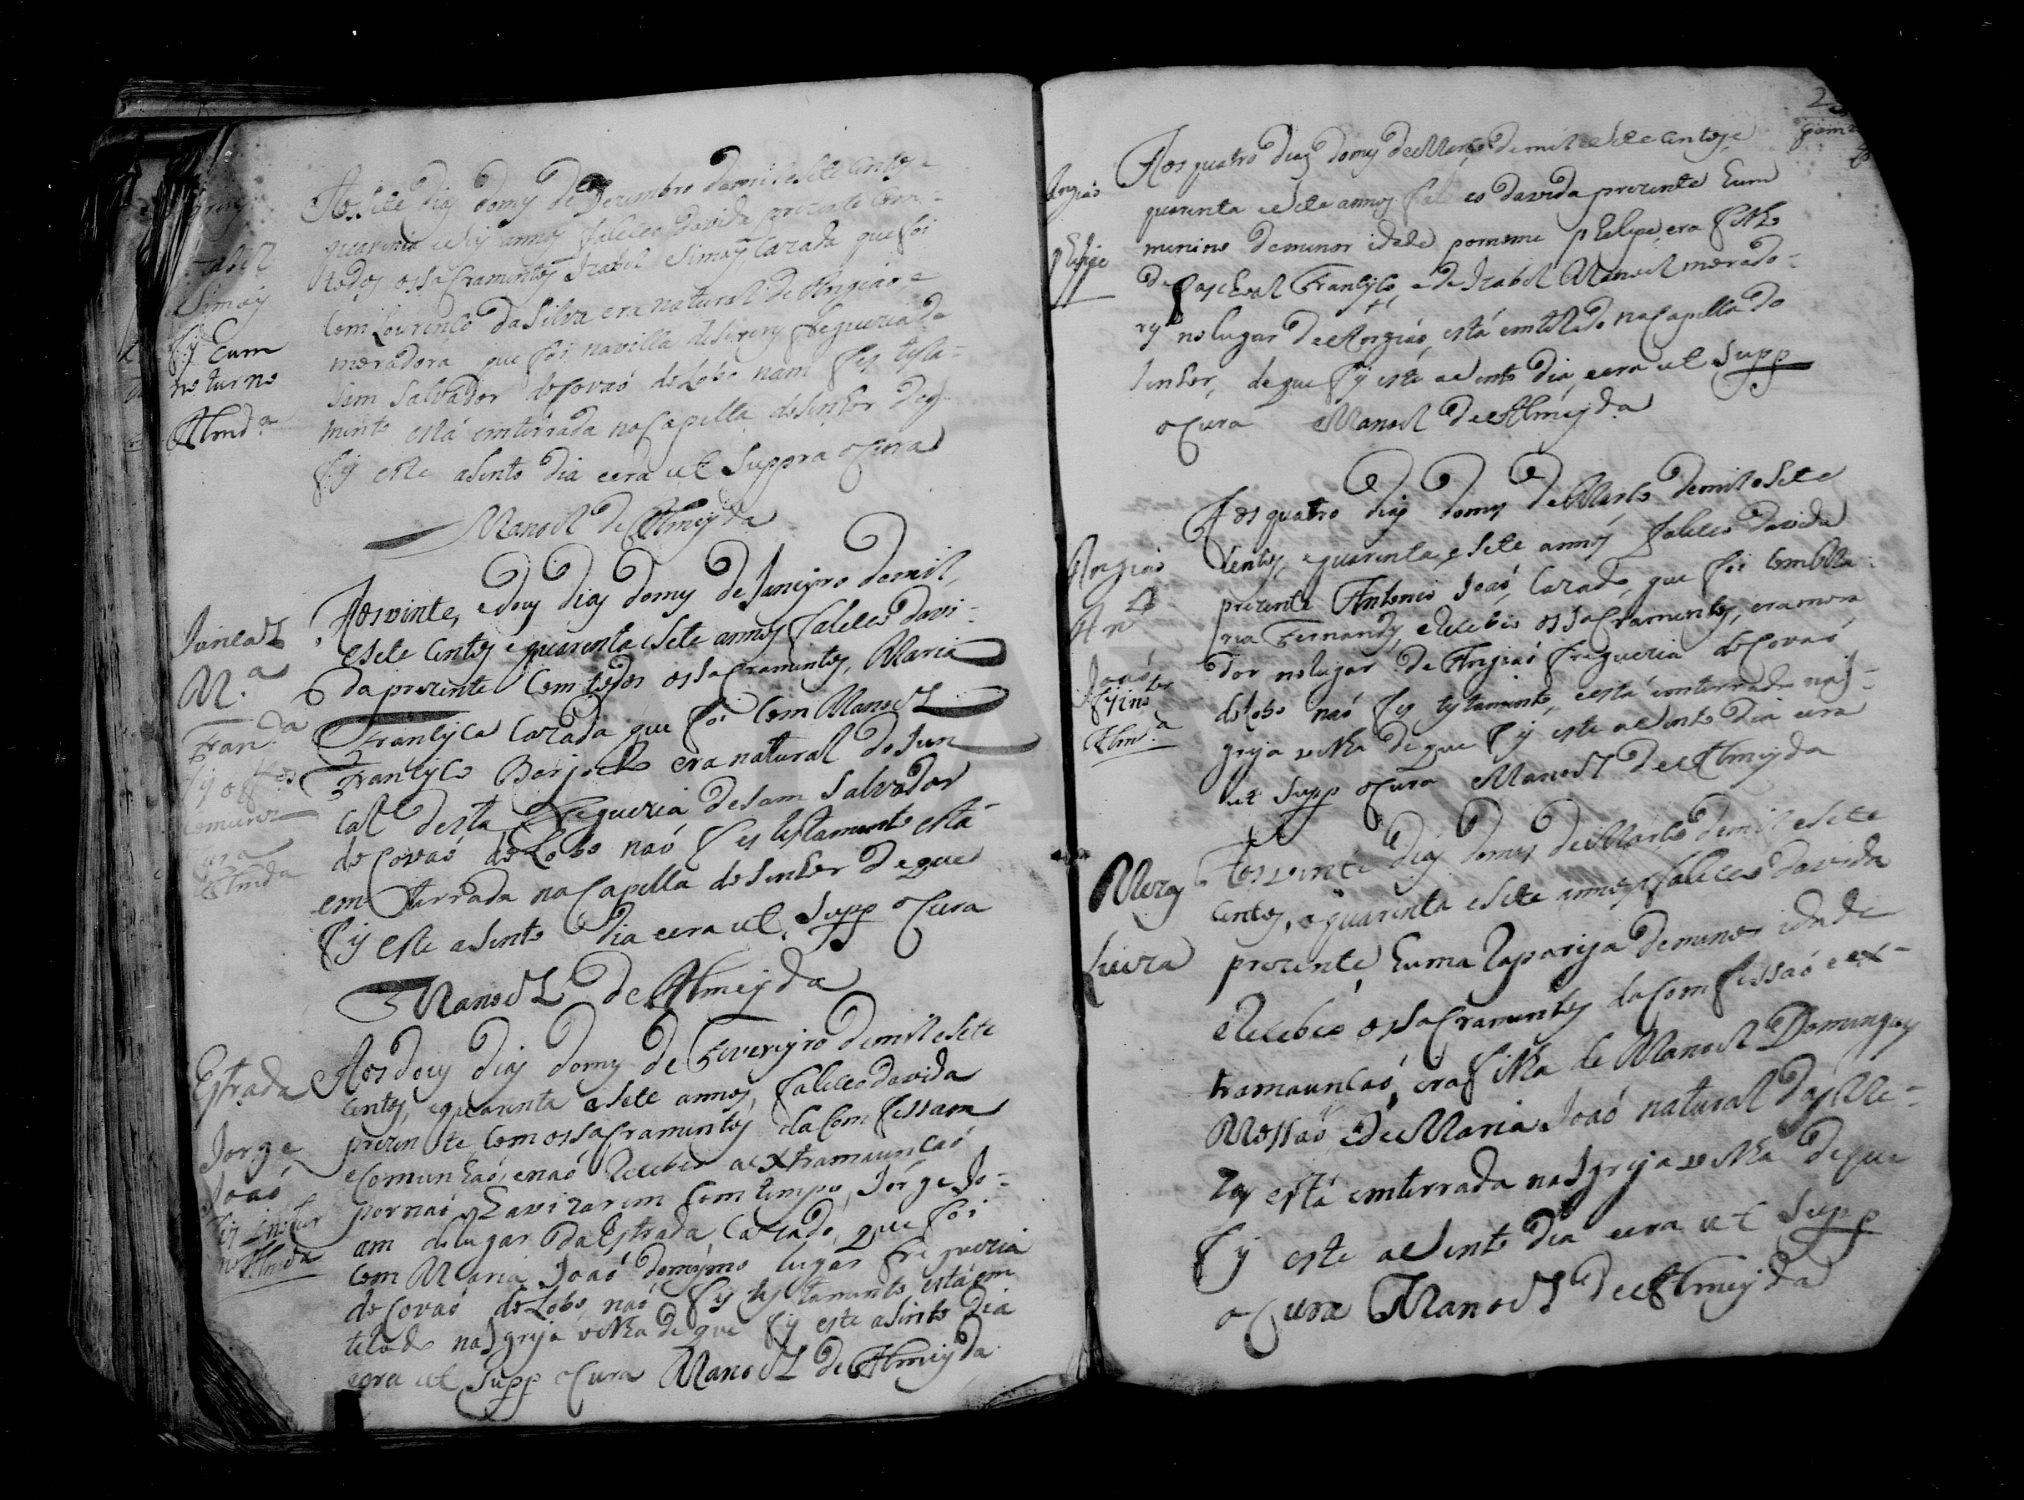 Aos sete dias do mes de Dezembro de mil e sete centos e
quarenta e seis annos faleceo da vida prezente com
todos os sacramentos Izabel Simois Cazada que foi
com Lourenco da Silva era natural de Angiao e
moradora que foi na villa de freguezia de
Sam Salvador do Covaó do Lobo nam fes testa-
mento está emterrada na Capella do Senhor de q
fis este asento dia e era ut suppra o Cura
Manoel de Almeyda
Izabel
Simois
fis hum
noturno
Almd.ª
Aos vinte, e dous dias do mes de Janeyro de mil,
e sete centos e quarenta e sete annos faleceo da vi-
da prezente com todos os sacramentos, Maria
Francisca Cazada que foi com Manoel
Francisco era natural do Jun
cal desta Freguezia de Sam Salvador
do Covaó do Lobo naó fes testamento está
emterrada na Capella do Senhor de que
fis este asento dia e era ut supp o Cura
Manoel de Almeyda
Juncal
M.ª
Fran.ca
Cura
Almda
Aos dous dias do mes de Fevereyro de mil e sete
centos, e quarenta e sete annos, faleceo da vida
prezente com os sacramentos da Comfissam
e Comunhaó, e naó recebeo a extramaunçaó
por naó avizarem com tempo, Jorge Jo-
am do lugar da Estrada Cazado, que foi
com Maria Joaó do mesmo lugar Freguezia
do Covaó do Lobo, naó fes testamento, está em
terado na Igreja velha de que fis este asento dia
e era ut supp o Cura Manoel de Almeyda
Estrada
Jorge
Joaó
Almda
Aos quatro dias do mes de Março de mil e sete centos, e
quarenta e sete annos faleceo da vida prezente hum
minino de menor idade por nome Phelipe, era filho
de Pascheal Francisco, e de Izabel Manoel morado-
res no lugar de Angiaó, está emterado na Capella do
Senhor, de que fis este asento dia, e era ut supp
o Cura Manoel de Almeyda
Angiaó
Phelipe
Aos quatro dias do mes de Março de mil e sete
centos, e quarenta, e sete annos faleceo da vida
prezente Antonio Joaó, Cazado, que foi com Ma-
ria Fernandes, e recebeo os sacramentos, era mora
dor no lugar de Angiaó Freguezia do Covaó
do Lobo naó fes testamento, e está emterrado na I-
greja velha de que fis este asento dia e era
ut supp o Cura Manoel de Almeyda
Angiaó
Antº
Joaó
Almd.ª
Aos vinte dias do mes de Março de mil e sete
centos, e quarenta e sete annos faleceo da vida
prezente huma Rapariga de menor idade
e recebeo os sacramentos da Comfissaó e ex-
tramaunçaó, era filha de Manoel Domingues
Mossaó e de Maria Joaó natural das Me-
zas está emterrada na Igreja velha de que
fis este asento dia e era ut supp
o Cura Manoel de Almeyda
Mezas
Luiza